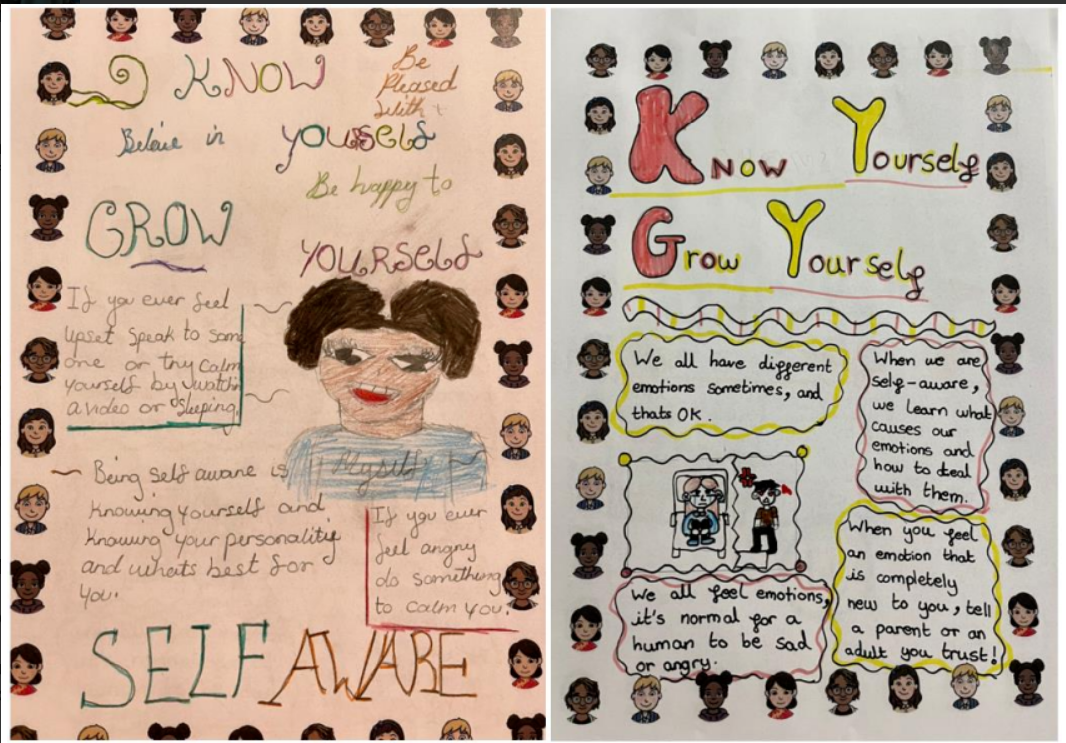 KNOW
Be
Pleased
with
Beleive in
YOURSELF
Be happy to
GROW
YOURSELF
If you ever feel
upset speak to som
one or try calm
yourself by watchin
a video or sleeping.
Being self awane is
Myself
knowing yourself and
knowing your personality
and whats best for
you.
If you ever
feel angry
do something
to calm you.
SELF AWARE
Know Yourself
Grow Yourself
We all have different
emotions sometimes, and
thats OK.
When we are
self-aware,
we learn what
causes our
emotions and
how to deal
with them.
We all feel emotions,
it's normal for a
human to be sad
or angry.
When you feel
an emotion that
is completely
new to you, tell
a parent or an
adult you trust!